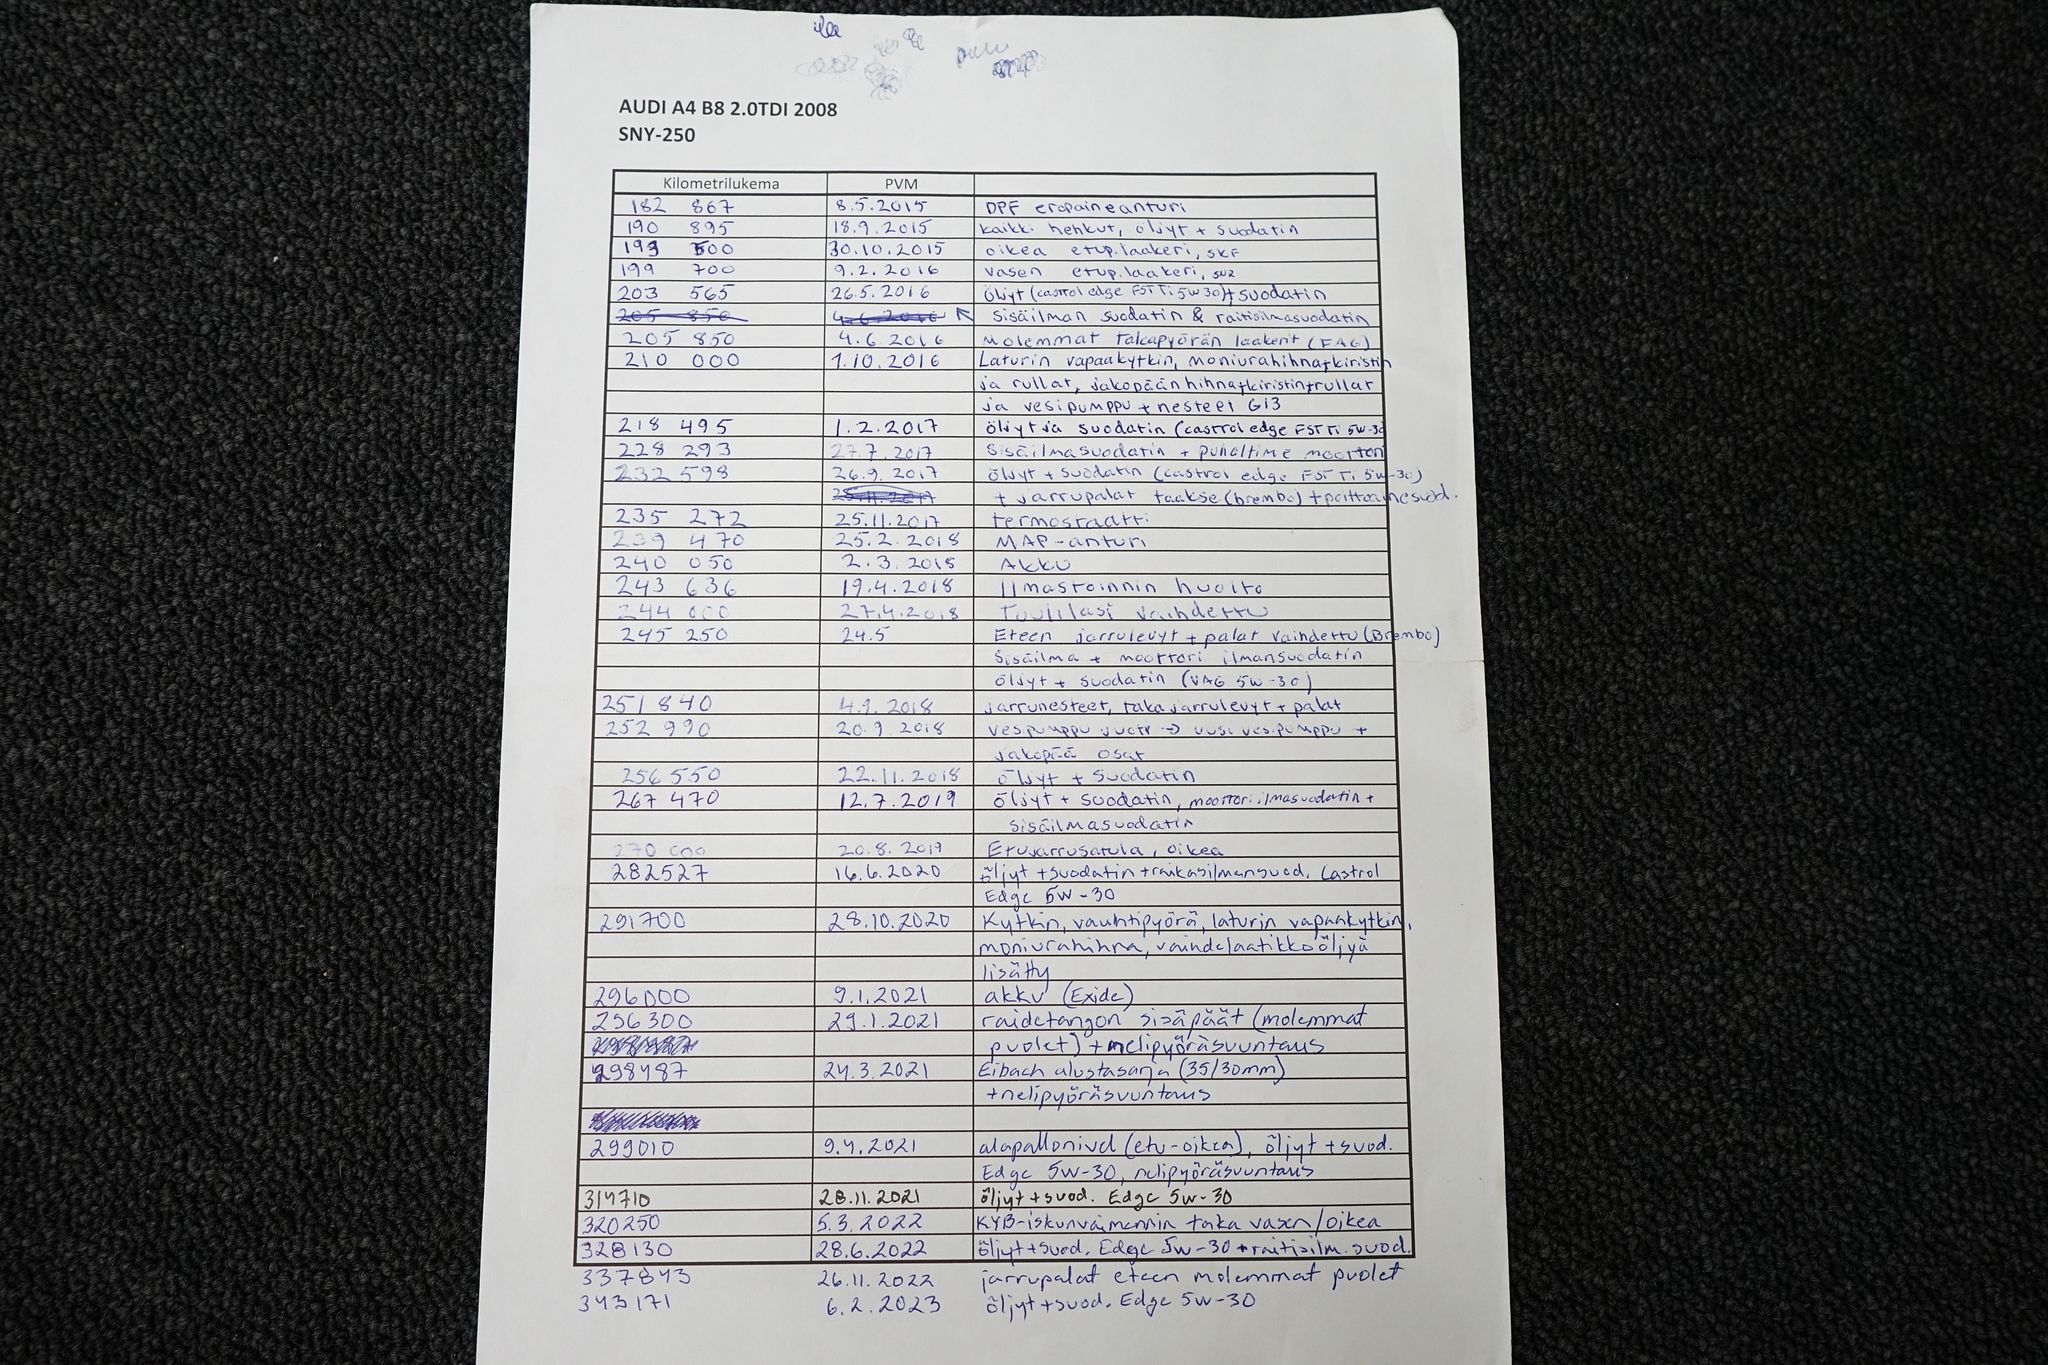 AUDI A4 B8 2.0TDI 2008
SNY-250
Kilometrilukema PVM
182 867 8.5.2015 DPF eropaineanturi
190 895 18.9.2015 kaikki hehkut, öljyt + suodatin
199 500 30.10.2015 oikea etup.laakeri, SKF
199 700 9.2.2016 vasen etup.laakeri,
203 565 26.5.2016 Öljyt (castrol edge FST Ti 5w30)+suodatin
205 850 4.6.2016 Sisäilman suodatin & raitisilmasuodatin
205 850 4.6.2016 Molemmat takapyörän laakerit (FAG)
210 000 1.10.2016 Laturin vapaakytkin, moniurahihna+kiristin
ja rullat, jakopään hihna+kiristin+rullat
ja vesipumppu + nesteet G13
218 495 1.2.2017 öljyt ja suodatin (castrol edge FST Ti 5w-30
228 293 27.7.2017 Sisäilmasuodatin + puhaltime moottori
232 598 26.9.2017 öljyt + suodatin (castrol edge FST Ti 5w-30)
25.11.2017 + jarrupalat taakse (brembo) + polttoainesuod.
235 272 25.11.2017 termostaatti
239 470 25.2.2018 MAP-anturi
240 050 2.3.2018 Akku
243 636 19.4.2018 Ilmastoinnin huolto
244 000 27.4.2018 Tuulilasi vaihdettu
245 250 24.5 Eteen jarrulevyt + palat vaihdettu (Brembo)
Sisäilma + moottori ilmansuodatin
öljyt + suodatin (VAG 5w-30)
251 840 4.9.2018 jarrunesteet, taka jarrulevyt + palat
252 990 20.9.2018 vesipumppu vuoti -> uusi vesipumppu +
jakopää osat
256 550 22.11.2018 öljyt + suodatin
267 470 12.7.2019 öljyt + suodatin, moottori ilmasuodatin +
sisäilmasuodatin
270 000 20.8.2019 Etujarrusatula, oikea
282527 16.6.2020 öljyt + suodatin + raikasilmansuod. Castrol
Edge 5W-30
291700 28.10.2020 Kytkin, vauhtipyörä, laturin vapaakytkin,
moniurahihna, vaihdelaatikko öljyä
lisätty
296000 9.1.2021 akku (Exide)
296300 29.1.2021 raidetangon sisäpäät (molemmat
puolet) + nelipyöräsuuntaus
298487 24.3.2021 Eibach alustasarja (35/30mm)
+nelipyöräsuuntaus
299010 9.4.2021 alapallonivel (etu-oikea), öljyt + suod.
Edge 5w-30, nelipyöräsuuntaus
314710 28.11.2021 öljyt + suod. Edge 5w-30
320250 5.3.2022 KYB-iskunvaimennin taka vasen/oikea
328130 28.6.2022 öljyt+suod. Edge 5w-30 + raitisilm. suod.
337843 26.11.2022 jarrupalat eteen molemmat puolet
343171 6.2.2023 öljyt+suod. Edge 5w-30